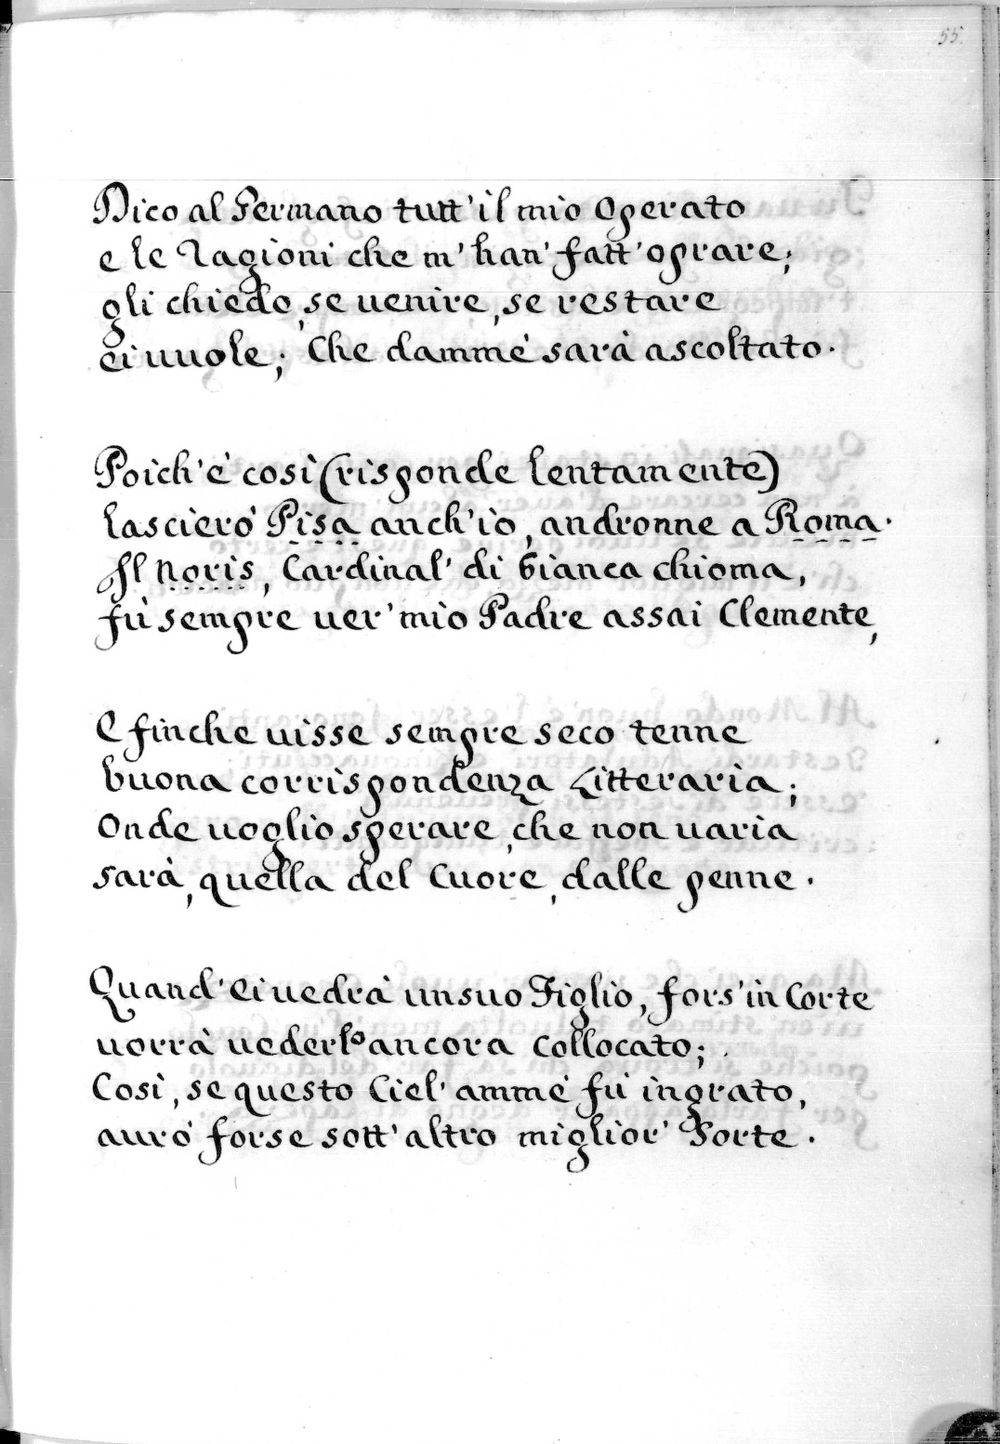 55.
Dico al Germano tutt' il mio operato
e le Ragioni che m' han' fatt' oprare;
gli chiedo, se uenire, se restare
ei uuole; Che dammè sarà ascoltato.
Poich' è così (risponde lentamente)
lascierò Pisa anch' io, andronne a Roma.
Il Noris, Cardinal' di bianca chioma,
fù sempre uer' mio Padre assai Clemente,
E finche uisse sempre seco tenne
buona corrispondenza Litteraria;
Onde uoglio sperare, che non uaria
sarà, quella del Cuore, dalle penne.
Quand' ei uedrà un suo Figlio, fors' in Corte
uorrà uederlo ancora collocato;
Così, se questo Ciel' ammè fù ingrato,
aurò forse sott' altro miglior' Sorte.